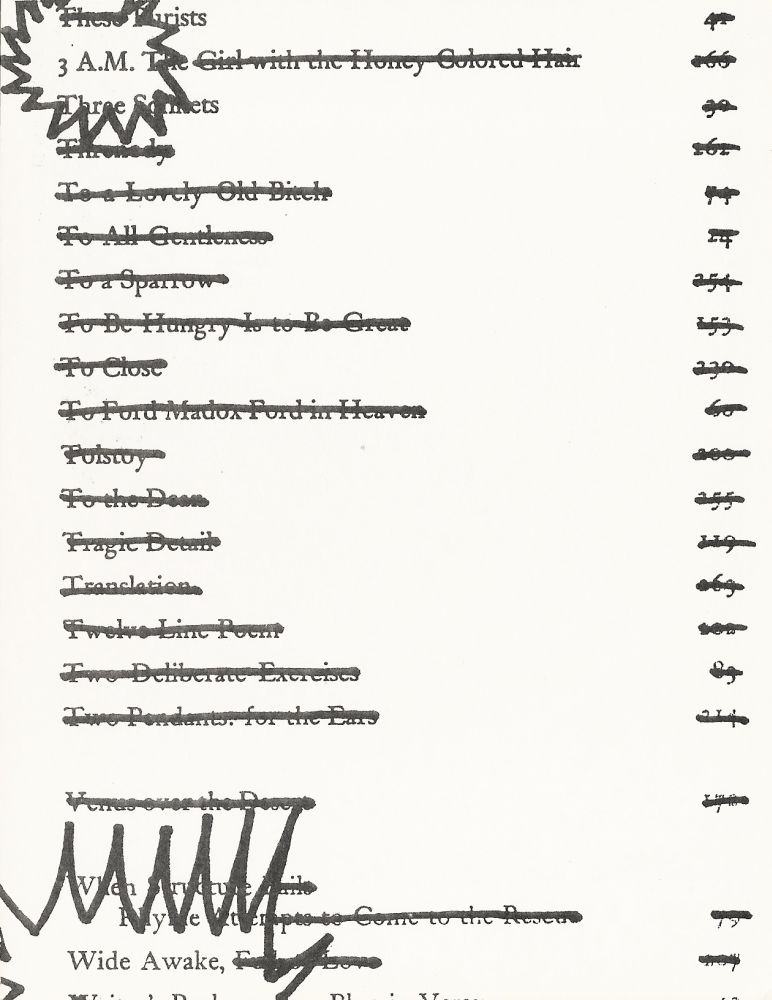 These Purists 41
3 A.M. The Girl with the Honey Colored Hair 166
Three Sonnets
Threnody
To a Lovely Old Bitch 74
To All Gentleness
To a Sparrow
To Be Hungry Is to Be Great 153
To Close 230
To Ford Madox Ford in Heaven 60
Tolstoy
To the Dean 255
Tragic Detail 119
Translation
Twelve Line Poem
Two Deliberate Exercises 83
Two Pendants: for the Ears 214
Venus over the Desert
When Structure Fails
Rhyme Attempts to Come to the Rescue
Wide Awake, Full of Love
Writer's Play in Verse